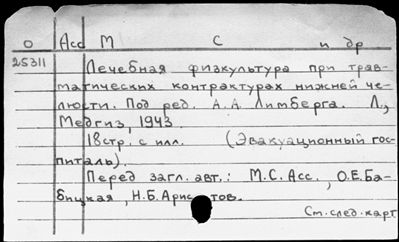 О Асс М С и др
25311 Лечебная физкультура при трав-
матических контрактурах нижней че-
люсти. Под ред. А.А. Лимберга. Л.,
Медгиз, 1943.
18стр. с илл. (Эвакуационный гос-
питаль).
Перед загл. авт.: М.С. Асс., О.Е. Ба-
бицкая, Н.Б. Арис тов.
См. след. карт